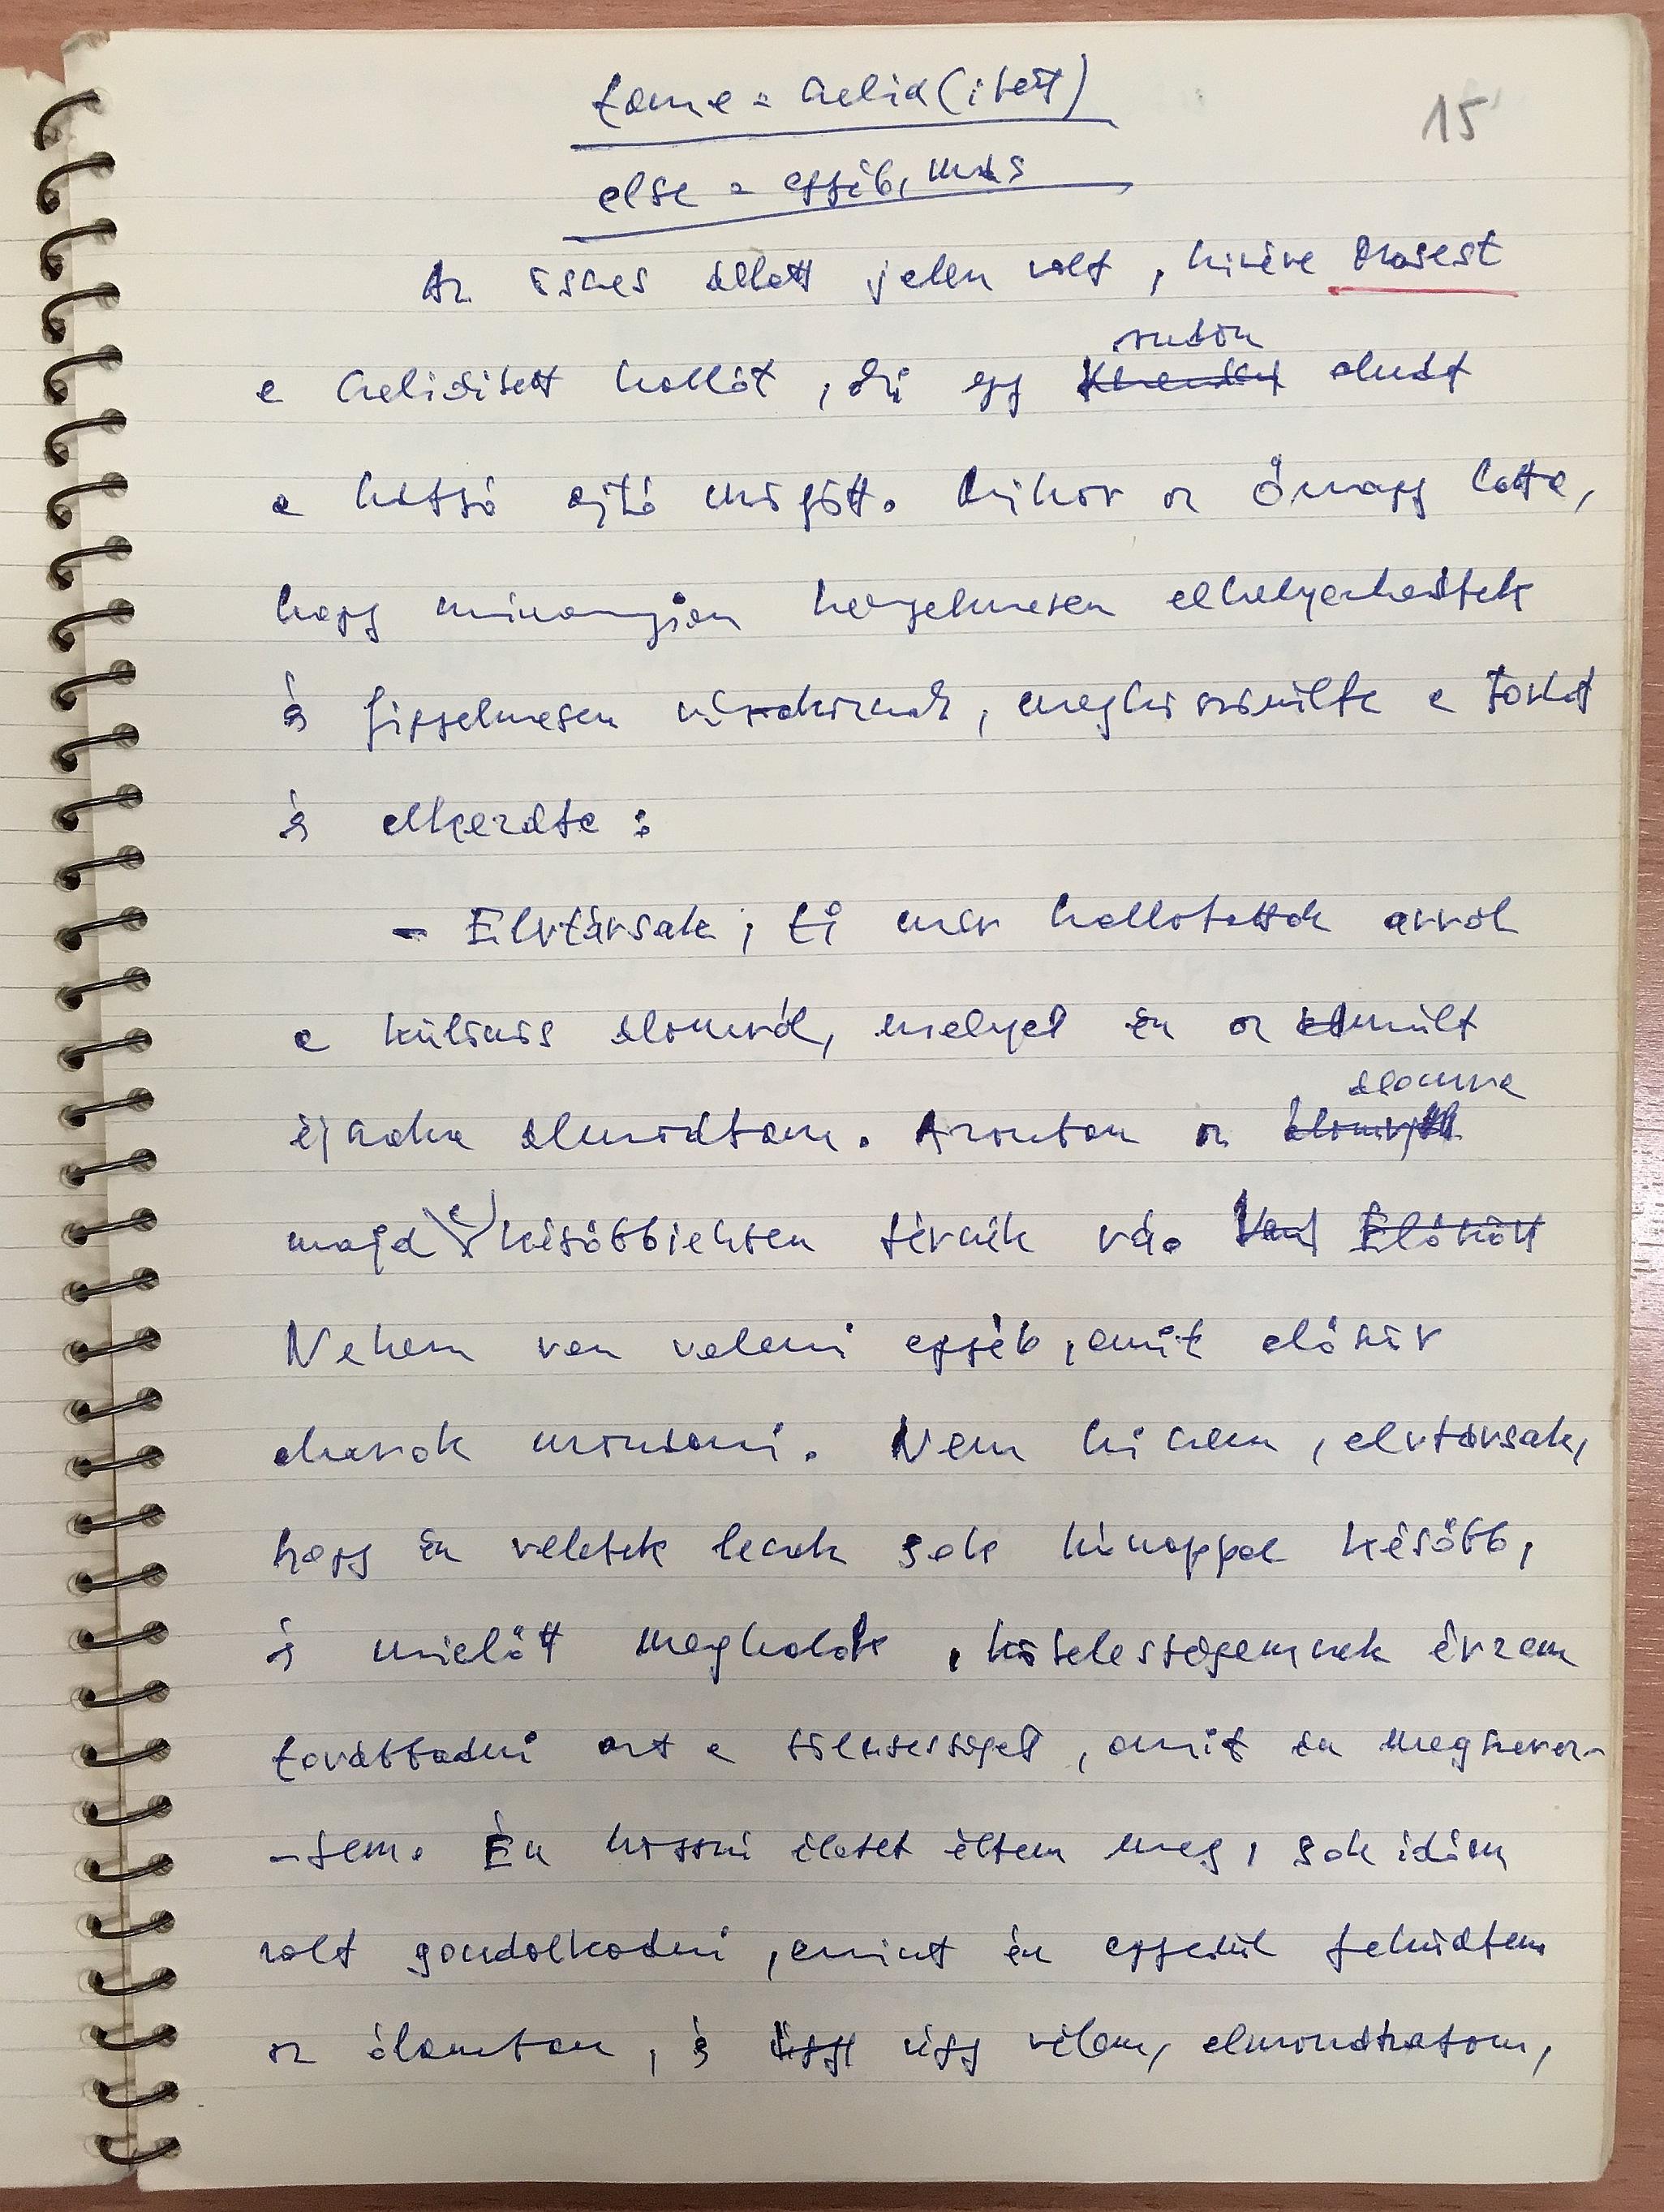 tame = szelid (ített)
15
else = egyéb, más
Az összes állat jelen volt, kivéve Mosest
a szelidített hollót, ki egy rudon aludt
a hátsó ajtó mögött. Mikor az Őrnagy látta,
hogy minannyian kényelmesen elhelyezkedtek
és figyelmesen várakoznak, megköszörülte a torkát
és elkezdte:
- Elvtársak, ti már hallottatok arról
a különös álomról, melyet én az elmúlt
éjszaka álmodtam. Azonban az álomra
majd a későbbiekben térnék rá. Előkött
Nekem van valami egyéb, amit először
akarok mondani. Nem hiszem, elvtársak,
hogy én veletek leszek sok hónappal később,
és mielőtt meghalok, kötelességemnek érzem
továbbadni azt a bölcsességet, amit én megszerez-
-tem. Én hosszú életet éltem meg, sok időm
volt gondolkodni, amint én egyedül feküdtem
az ólamban, és úgy vélem, elmondhatom,